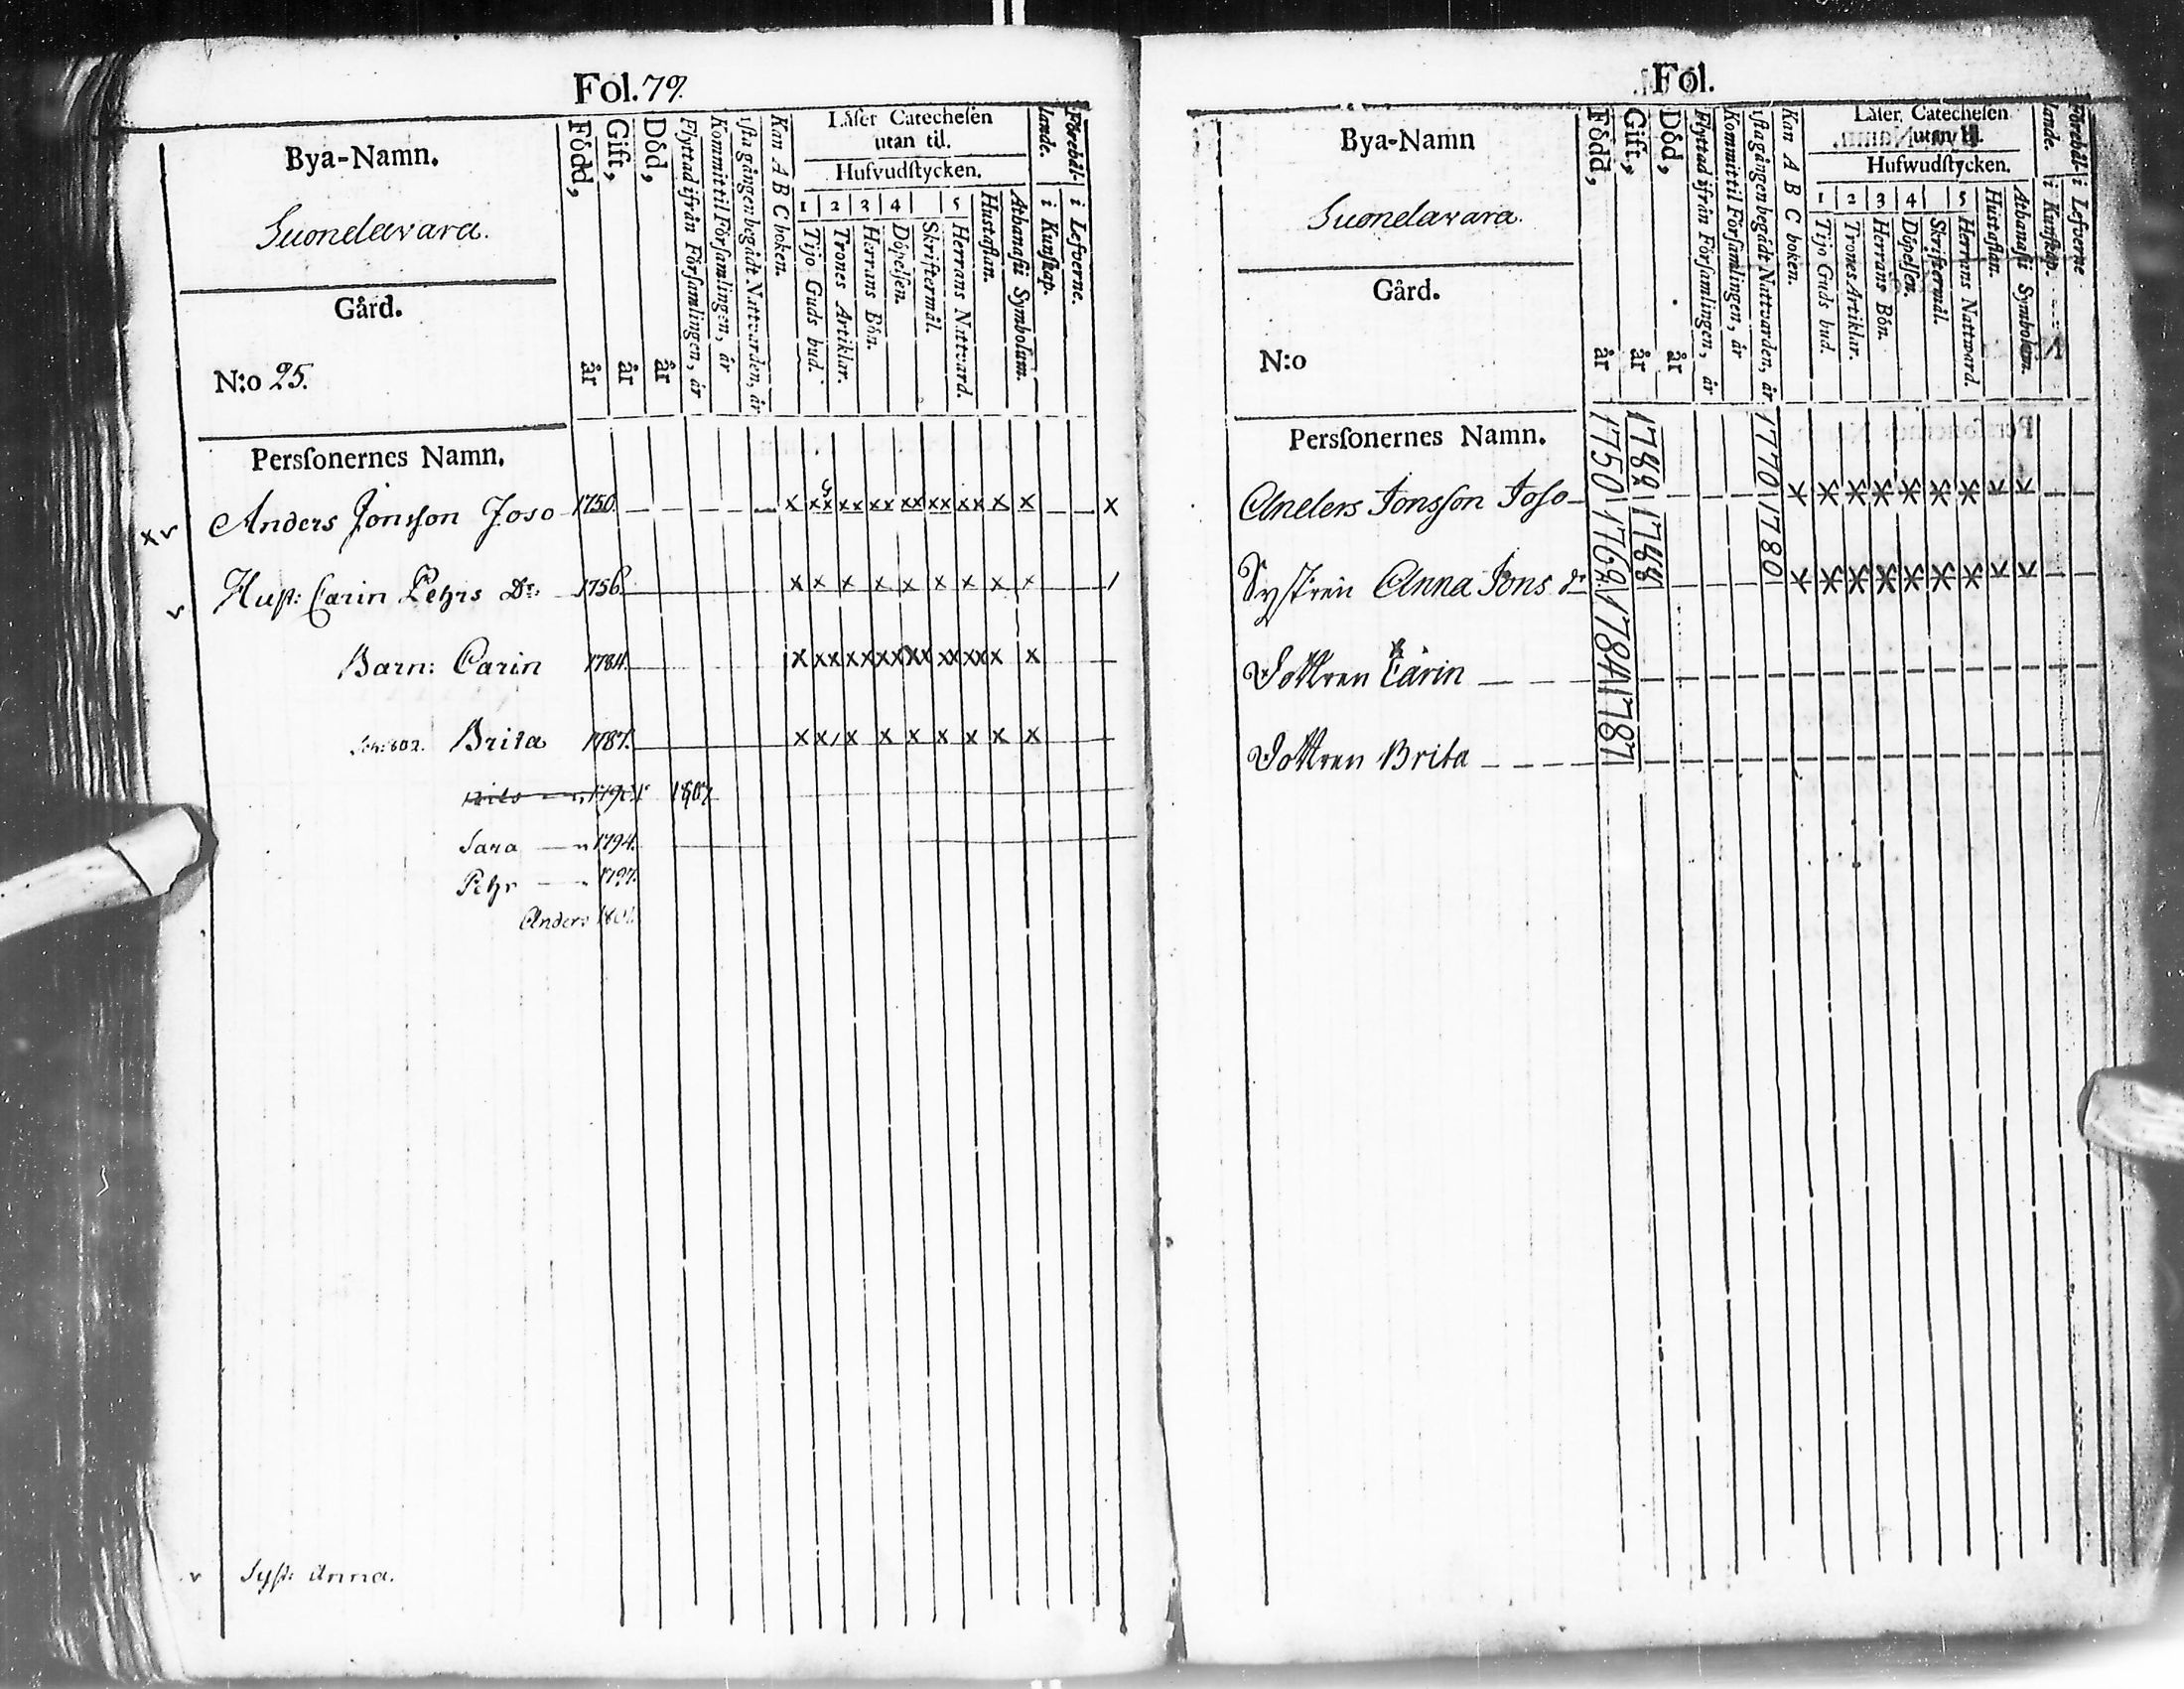 Fol. 79.
Bya-Namn.
Suondavara.
Gård.
N:o 25.
Född, år
Gift, år
Död, år
Flyttad ifrån Församlingen, år
Kommit til Församlingen, år
1sta gången begådt Nattvarden, år
Kan A B C boken.
Läser Catechesen
utan til.
Hufvudstycken.
1 2 3 4 5
Tijo Guds bud.
Trones Artiklar.
Herrans Bön.
Döpelsen.
Skriftermål.
Herrans Nattvard.
Hustaflan.
Athanasii Symbolum.
Förehål-
lande.
i Kunskap.
i Lefverne.
Perssonernes Namn.
x v Anders Jonsson Joso 1750. x xx xx xx xx xx xx x x x
v Hust: Carin Pehrs Dr. 1756 x x x x x x x x x /
Barn: Carin 1784. x xx xx xx xx xx xx x x
Brita 1787. x x / x x x x x x x
1807
Sara — " 1794.
Pehr — " 1797.
Anders 1801.
v Syst: Anna.
Fol.
Bya-Namn
Suondavara.
Gård.
N:o
Född, år
Gift, år
Död, år
Flyttad ifrån Församlingen, år
Kommit til Församlingen, år
1sta gången begådt Nattvarden, år
Kan A B C boken.
Läser Catechesen
utan til.
Hufwudstycken.
1 2 3 4 5
Tijo Guds bud.
Trones Artiklar.
Herrans Bön.
Döpelsen.
Skriftermål.
Herrans Nattward.
Hustaflan.
Athanasii Symbolum.
Förehål-
lande.
i Kunskap.
i Lefverne
Perssonernes Namn.
Anders Jonsson Joso 1750 1770 x x x x x x x x x
Systren Anna Jons dr 1762 1788 1780 x x x x x x x x x
Dottren Carin 1784
Dottren Brita 1787